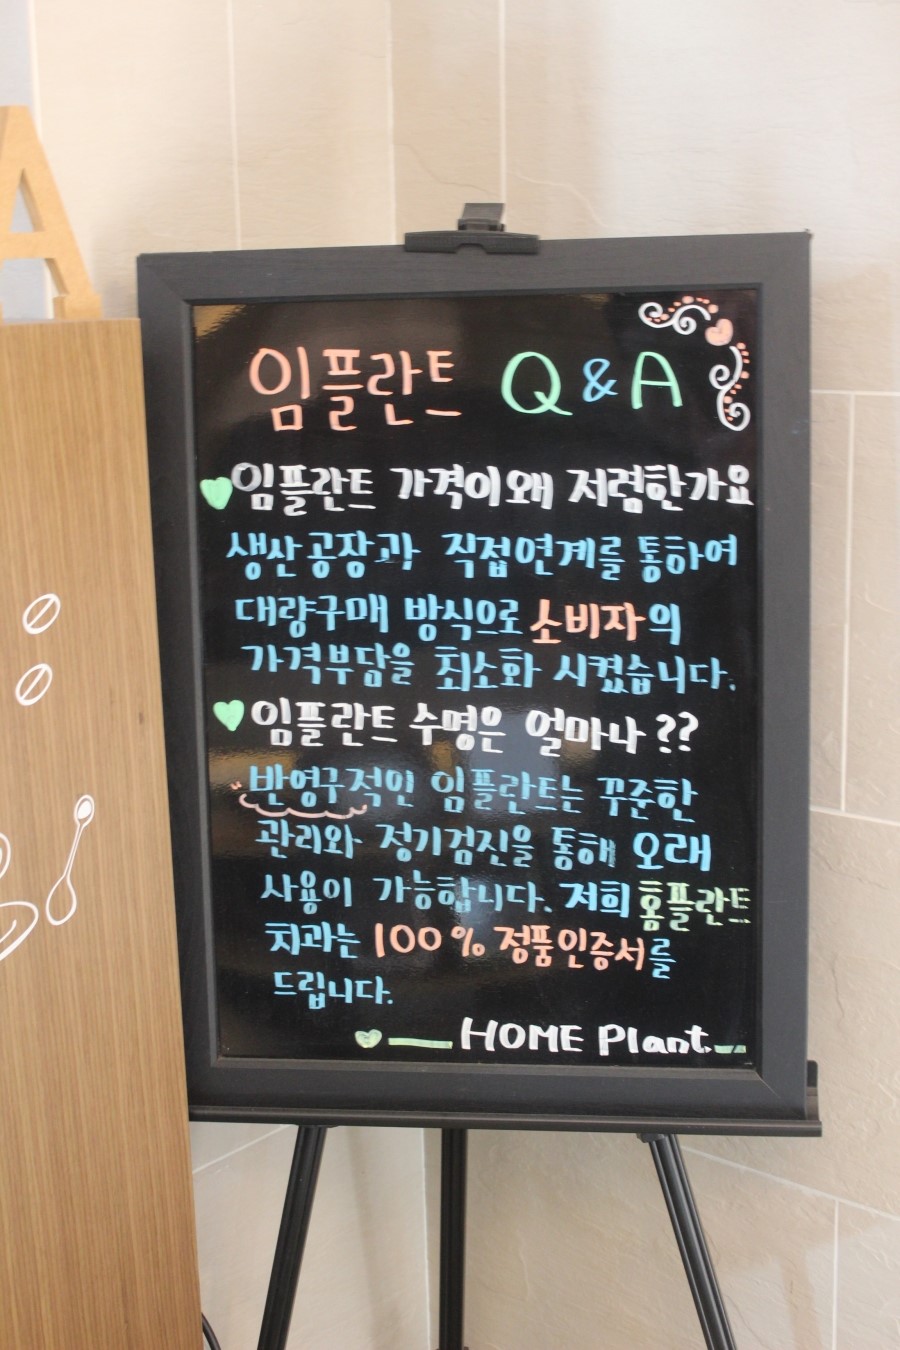 A
임플란트 Q & A
임플란트 가격이 왜 저렴한가요
생산공장과 직접연계를 통하여
대량구매 방식으로 소비자의
가격부담을 최소화 시켰습니다.
임플란트 수명은 얼마나??
반영구적인 임플란트는 꾸준한
관리와 정기검진을 통해 오래
사용이 가능합니다. 저희 홈플란트
치과는 100% 정품인증서를
드립니다.
HOME Plant.